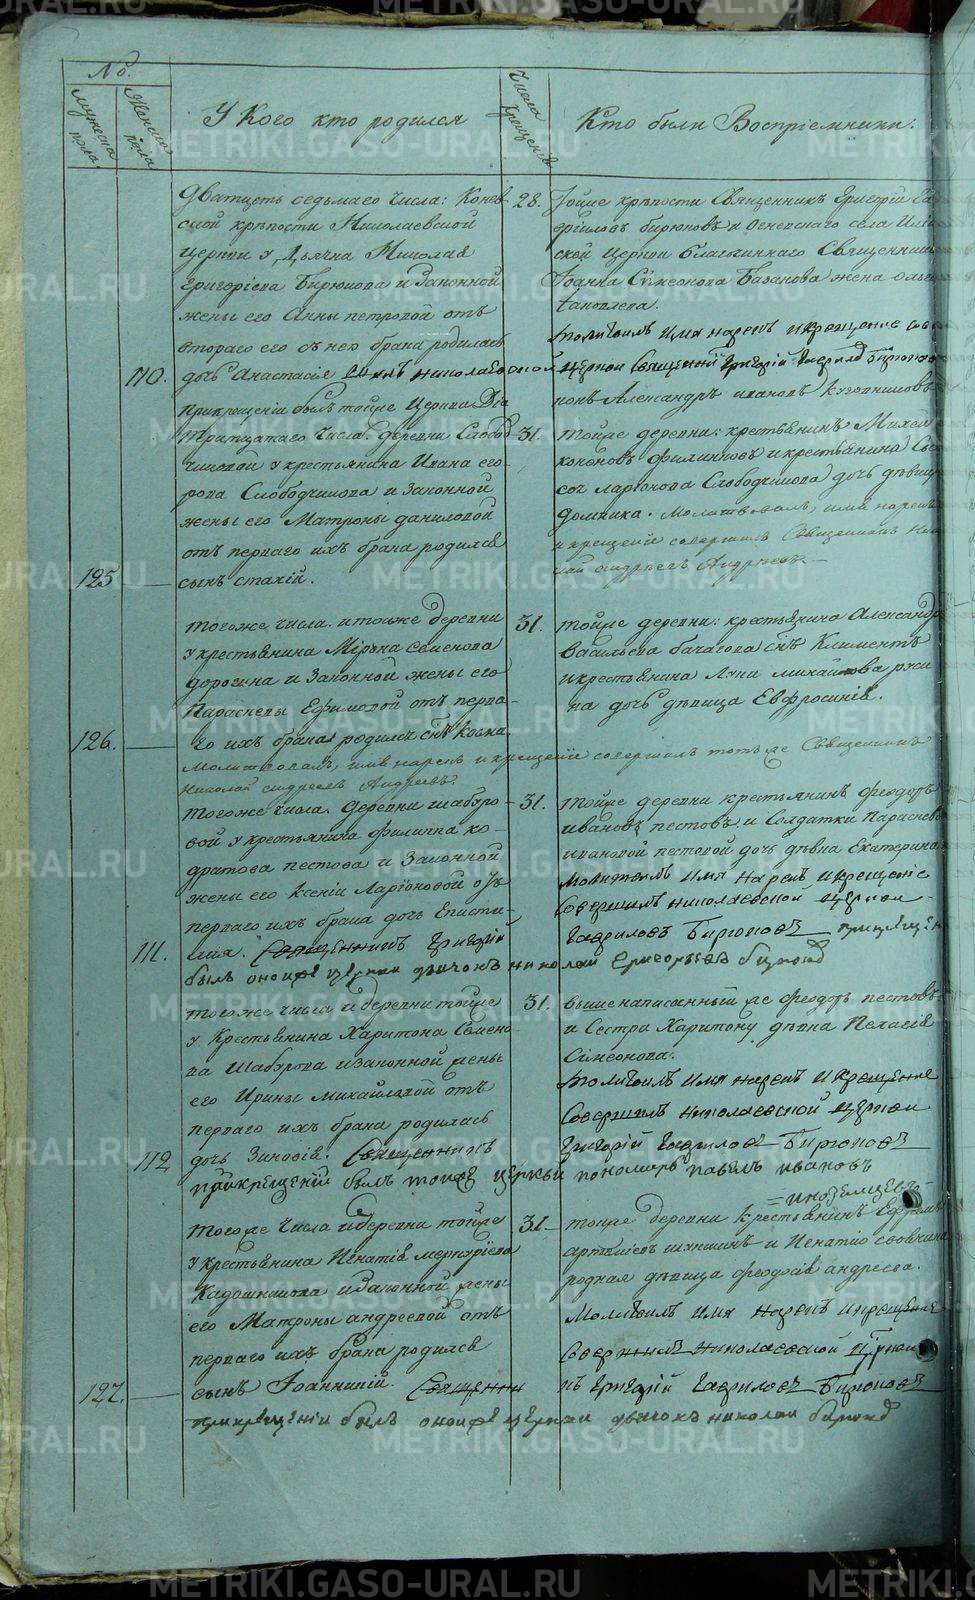 №.
мужеска пола.
Женска пола
У Кого кто родился
Числа Крещенія
Кто были Воспріемники.
Дватцеть седьмаго числа: Конев-
ской крѣпости Николаевской
церкви у Дьячка Николая
григоріева Бирюкова и Законной
жены его Анны петровой отъ
втораго его съ нею брака родилась
110.
дочь Анастасія
прикрещеніи былъ тойже Церкви
28.
Тойже крѣпости Священникъ Григорій Га-
фриловъ бирюковъ и
ской церкви благочиннаго Священника
Іоанна Симеонова Базанова жена
Іаковлева.
молитвилъ имя нарекъ и крещение
церкви священникъ Григорій Гаврилов Бирюков
Александръ ивановъ
тритцатаго числа: деревни Слобод-
чиковой у крестьянина Ивана его-
рова Слободчикова и Законной
жены его Матроны даниловой
отъ перваго ихъ брака родился
125
сынъ стахій.
31.
тойже деревни: крестьянинъ Михей
кононовъ филинковъ и крестьянина
ларионова Слободчикова дочь дѣвица
домника. Молитвовалъ, имя нарекъ
и крещеніе совершилъ Священникъ Ни-
лай андреевъ Андреевъ
тогоже числа. и тоиже деревни
у крестьянина Мірона семенова
дорогина и Законной жены его
Параскевы Ефимовой отъ перва-
126.
го ихъ брака родился снъ Косма.
Молитвовалъ, имя нарекъ и крещеніе совершилъ тотъ же Священникъ
Николай андреевъ Андреевъ.
31.
тойже деревни: крестьянина Александра
Васильева бачагова снъ Климентъ
и крестьянина Луки михайлова
на дочь дѣвица Евфросинія.
тогоже числа. деревни шабуро-
вой у крестьянина Филиппа ко-
дратова пестова и Законной
жены его Ксеніи Ларіоновой отъ
перваго ихъ брака дочь Еписти-
111.
мія. Священникъ григорій
былъ оноиже церкви дьячокъ николай григорьевъ бирюков
31.
тойже деревни крестьянинъ феодоръ
ивановъ пестовъ и Солдатки Параскевы
ивановой пестовой дочь дѣвка Екатерина
Молитвилъ имя нарекъ и крещеніе
Совершилъ николаевской церкви
Гавриловъ Бирюковъ прикрещен
тогоже числа и деревни тойже
у Крестьянина Харитона Семено-
ва Шабурова изаконной жены
его Ирины михайловой отъ
перваго ихъ брака родилась
112
дочь Зиновія. Священникъ
прикрещеніи былъ тоиже церкви пономарь павелъ ивановъ
31.
вышенаписанный же феодоръ пестовъ
и Сестра Харитону дѣвка Пелагія
Симеонова.
молитвилъ имя нарекъ и крещение
Совершилъ николаевской церкви
Григорій Гаврилов Бирюков
тогоже числа идеревни тойже
у крестьянина Игнатія меркуріева
Кадошникова изаконной жены
его Матроны андреевой отъ
перваго ихъ брака родился
127.
сынъ Іоанникій. Священни
прикрещеніи былъ оноиже церкви дьячокъ николаи бирюков
31
иноземцевъ
тойже деревни крестьянинъ Ефремъ
артемьевъ и Игнатію
родная дѣвица феодосія андреева.
Молитвилъ имя нарекъ икрещение
Совершилъ николаевской церкви
къ Григорій Гаврилов Бирюков
METRIKI.GASO-URAL.RU